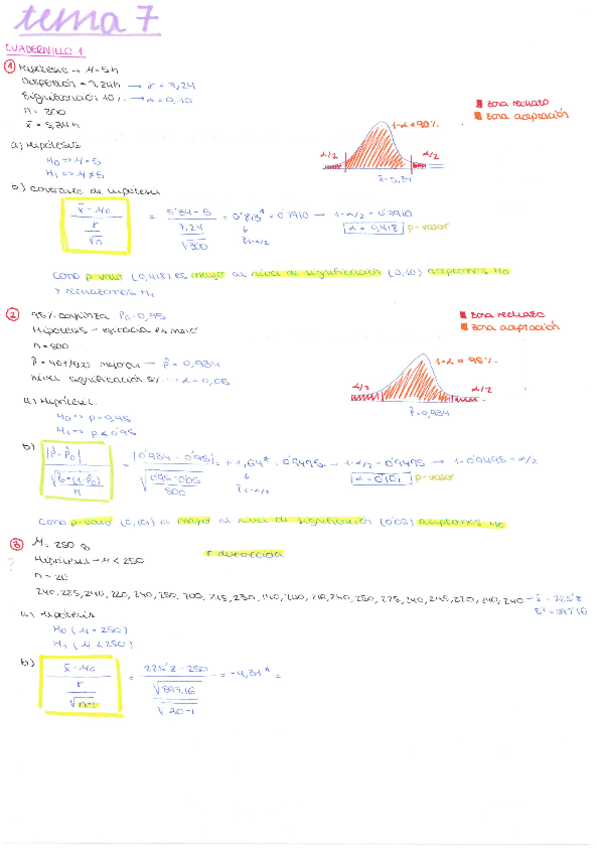 tema 7
CUADERNILLO 1
1 Hipótesis → μ = 5h
Dispersión = 7,24h → σ = 7,24
Significación 10% → α = 0,10
n = 300
x̄ = 5,34h
zona rechazo
zona aceptación
1-α = 90%
α/2
α/2
x̄ = 5,34
a) Hipótesis
H0 => μ = 5
H1 => μ ≠ 5
b) contraste de hipótesis
x̄ - μ0 / σ/√n = 5'34 - 5 / 7,24/√300 = 0'813* = 0'7910 → 1-α/2 = 0'7910
z1-α/2
α = 0,418 p-valor
como p-valor (0,418) es mayor al nivel de significación (0,10) aceptamos H0
y rechazamos H1
2 95% confianza P0 = 0,95
n = 500
p̂ = 467/500 mejoran → p̂ = 0,934
nivel significación 5% → α = 0,05
zona rechazo
zona aceptación
α/2
α/2
p̂ = 0,934
a) Hipótesis
H0 => p = 0,95
H1 => p < 0'95
b) |p̂ - p̂0| / √p̂0·(1-p̂0)/n = |0'934 - 0'95| / √0'95·0'05/500 = 1,64* = 0'9495 → 1-α/2 = 0'9495 → 1-0'9495 = α/2
z1-α/2
α = 0'101 p-valor
como p-valor (0,101) es mayor al nivel de significación (0'05) aceptamos H0
3 μ = 250 g
σ desconocida
?
Hipótesis → μ < 250
n = 20
x̄ = 225'8
a) Hipótesis
H0 (μ = 250)
H1 (μ < 250)
b) x̄ - μ0 / σ/√n-1 = 225'8 - 250 / √897,16/√20-1 = -4,81* =